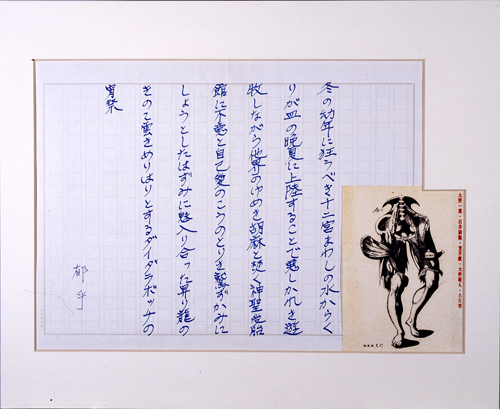 冬の幼年に狂うべき十二宮まわしの水からく
りが皿の晩夏に上陸することで悪しかれを遊
牧しながら世界のゆめを胡麻と焼く神聖受胎
館に不意と自己愛のこうのとりを鷲ずかみに
しようとしたはずみに魅入り合った昇り龍の
きのて雲をめりはりとするダイダラボッチの
胃祭
郁乎